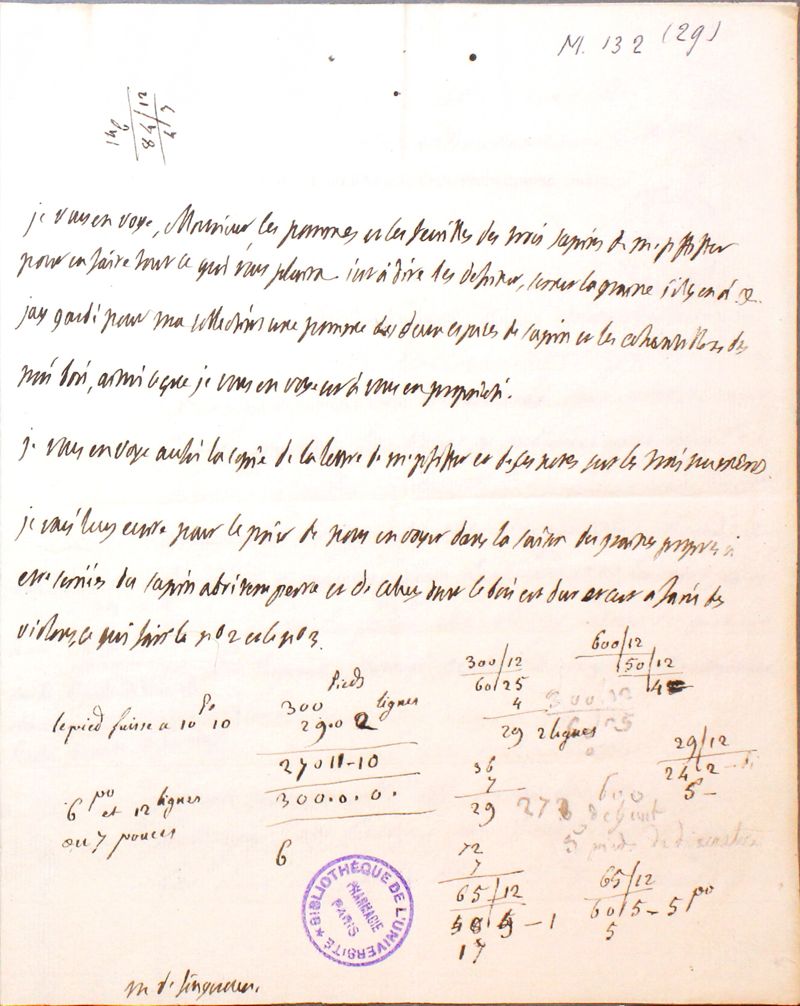 M. 132 (29)
84/12
je vous envoye, Monsieur les pommes et les feuilles des trois sapins de mr pfiffer
pour en faire tout ce qui vous plaira c'est à dire les dessiner, semer la graine s'il y en a &.
jay gardé pour ma collection une pomme des deux especes de sapin et les echantillons des
trois bois, ainsi ce que je vous envoye est à vous en propriété.
je vous envoye aussi la copie de la lettre de mr pfiffer et de ses notes sur les trois numeros
je vais luy ecrire pour le prier de nous envoyer dans la saison des graines propres à
etre semées du sapin et de celuy dont le bois est dur et sert a faire des
violons, ce qui fait le nº 2 et le nº 3.
pieds
lignes
le pied suisse a 10 po 10
300
29.0 2
27011-10
300.0.0.
6 po et 12 lignes
ou 7 pouces
6
300/12
60/25
4
29 2 lignes
600/12
50/12
4
36
7
29
29/12
24 2
5
72
7
65/12
1
17
65/12
60/5 - 5 po
5
300/12
600
5 pieds de
BIBLIOTHÈQUE DE L'UNIVERSITÉ
PHARMACIE
PARIS